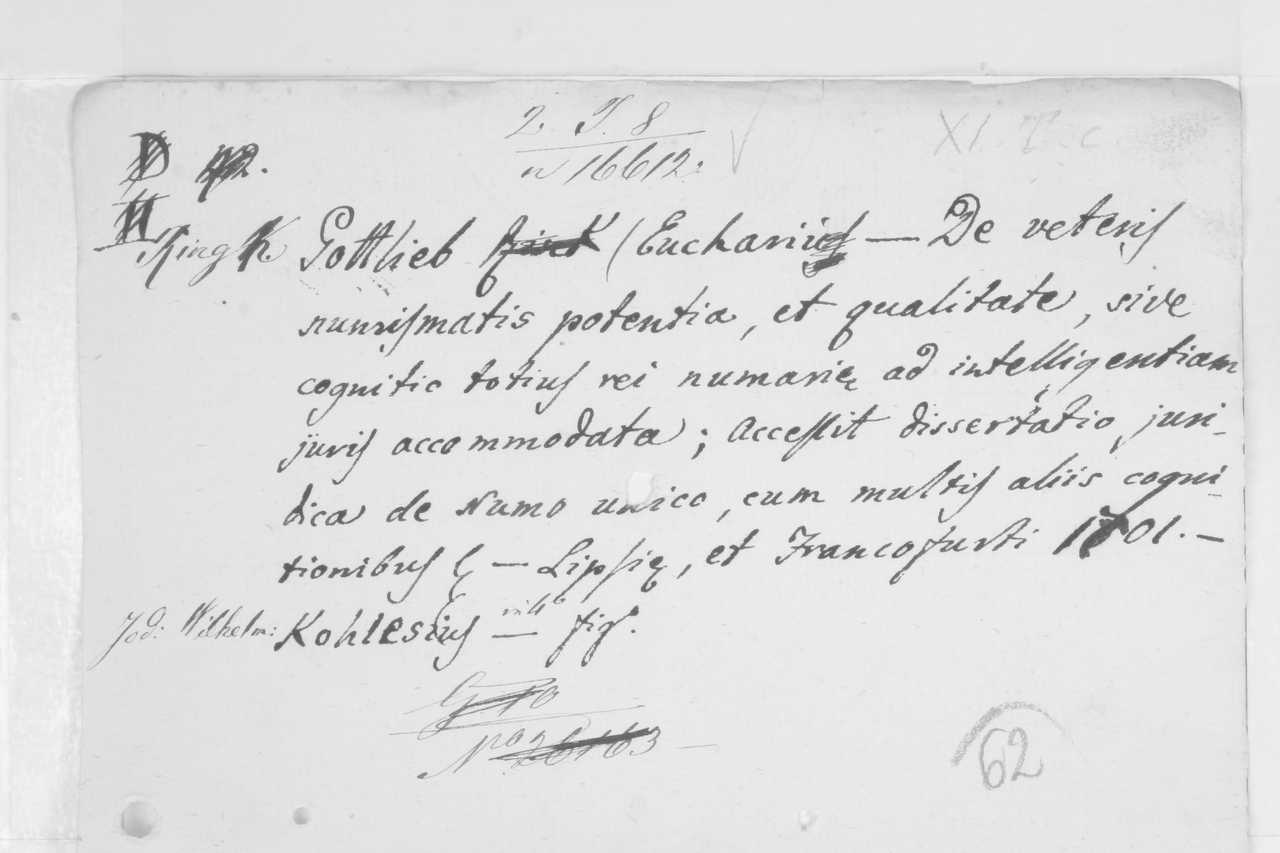 2. T. 8
XI. T. c.
n 16612.
D 42.
H
Ringk Gottlieb (Eucharius — De veteris
numismatis potentia, et qualitate, sive
cognitio totius rei numarię ad intelligentiam
juris accommodata; Accessit dissertatio juri-
dica de Numo unico, cum multis aliis cogni-
tionibus — Lipsię, et Francofurti 1701. —
Jod: Wilhelm: Kohlesius — fig.
G. 10
No 26163
62